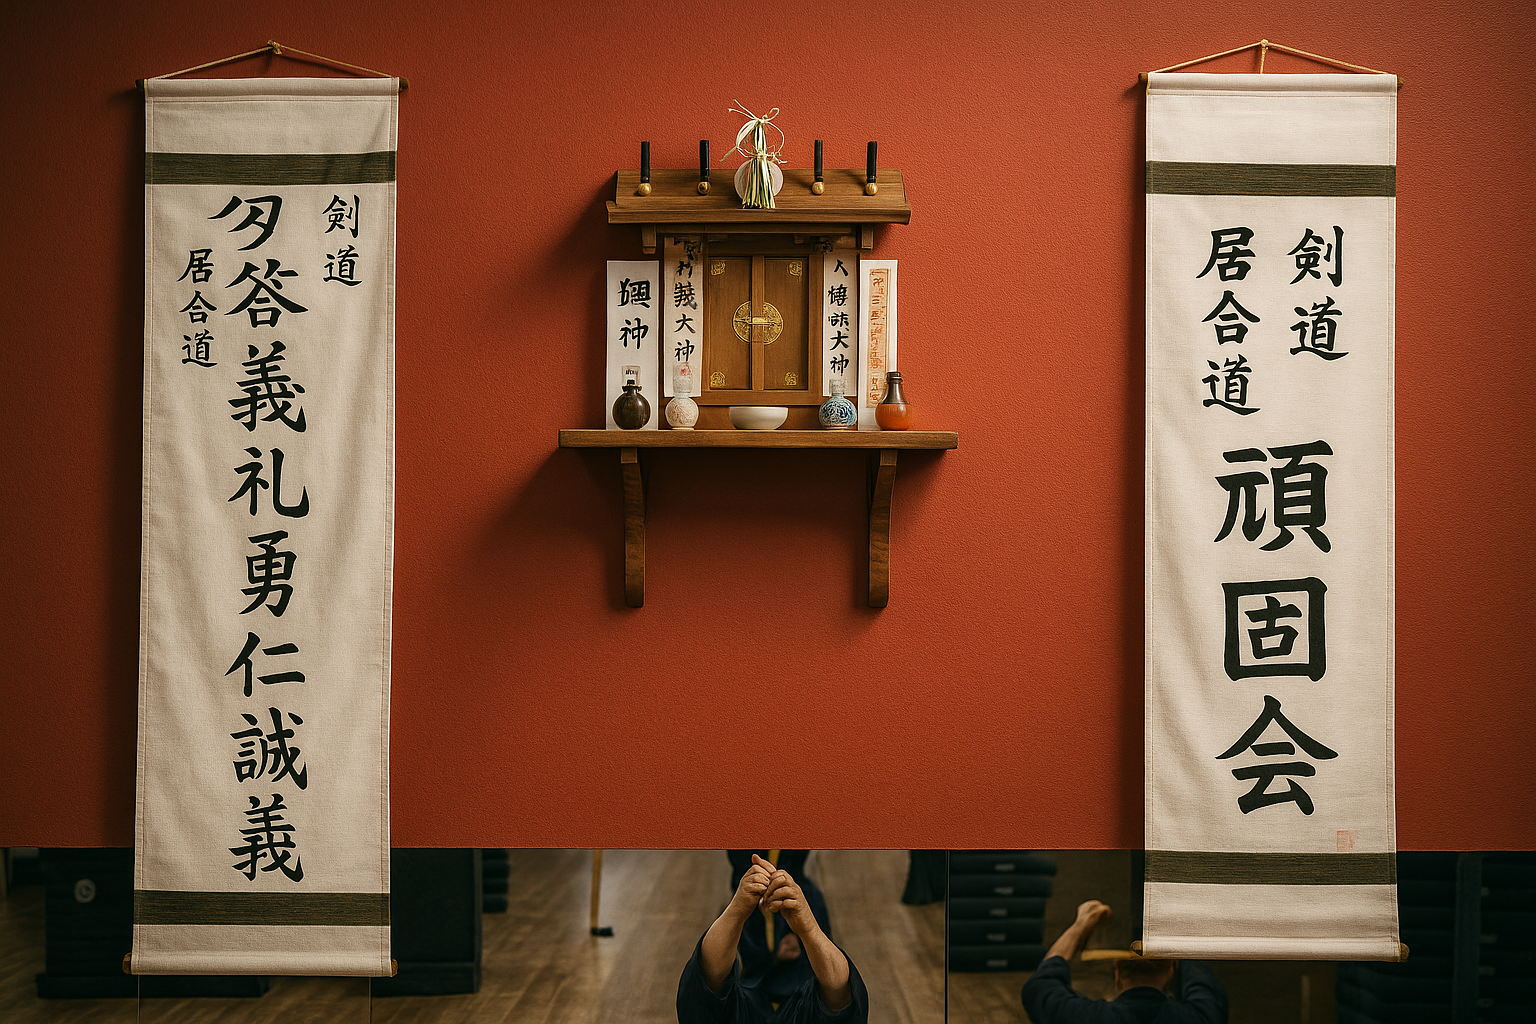 剣道
答義礼勇仁誠義
居合道
神
大神
大神
剣道
居合道
頑固会